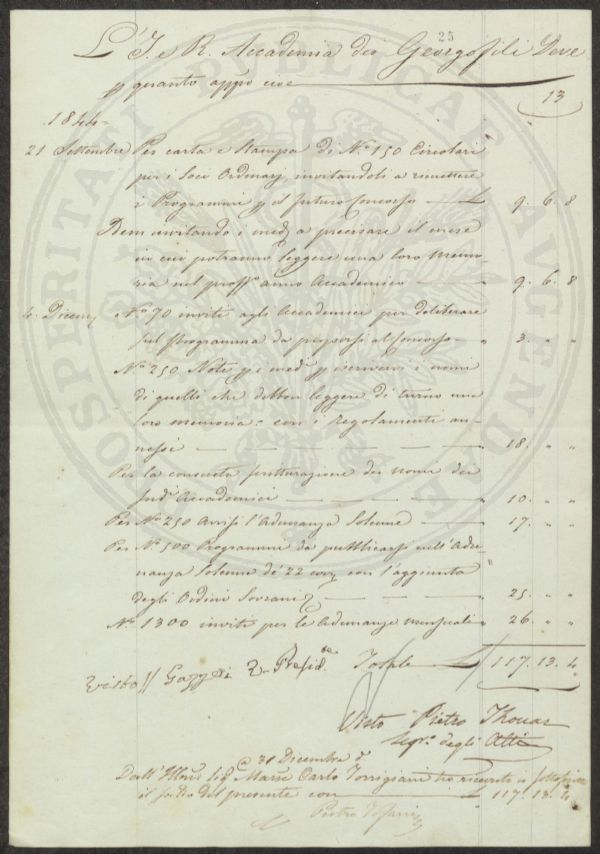 25
L'I. e R. Accademia dei Georgofili Deve
p quanto app.o cioè
13
1844
21 Settembre Per carta e Stampa di N.o 150 Circolari
per i Soci Ordinarj invitandoli a rimettere
i Programmi p il futuro Concorso — L 9. 6. 8
Dem invitando i med.i a precisare il mese
in cui potranno leggere una loro Memo
ria nel pross.o anno Accademico — " 9. 6. 8
4. Dicem.e N.o 70 inviti agli Accademici per deliberare
sul Programma da proporsi al Concorso — " 3. " "
N.o 250 Note p i med.i p scrivervi i nomi
di quelli che debbon leggere di turno una
loro memoria: con i Regolamenti an-
nessi — " 18. " "
Per la consueta dei nomi dei
sud.i Accademici — " 10. " "
Per N.o 250 Avvisi l'Adunanza Solenne — " 17. " "
Per N.o 500 Programmi da pubblicarsi nell'Adu-
nanza Solenne de' 22 con l'aggiunta
degli Ordini Sovrani — " 25. " "
N.o 1300 inviti per le Adunanze mensuali " 26. " "
Totale — L 117. 13. 4
Visto Gazzeri V. Presid.te
Visto Pietro Thouar
Seg.o degli Atti
31 Dicembre d.o
Dall'Ill.mo Sig.e Marse Carlo Torrigiani ho ricevuto
il saldo del presente con — L 117. 13. 4
Pietro
PROSPERITATI PUBLICAE AUGENDAE